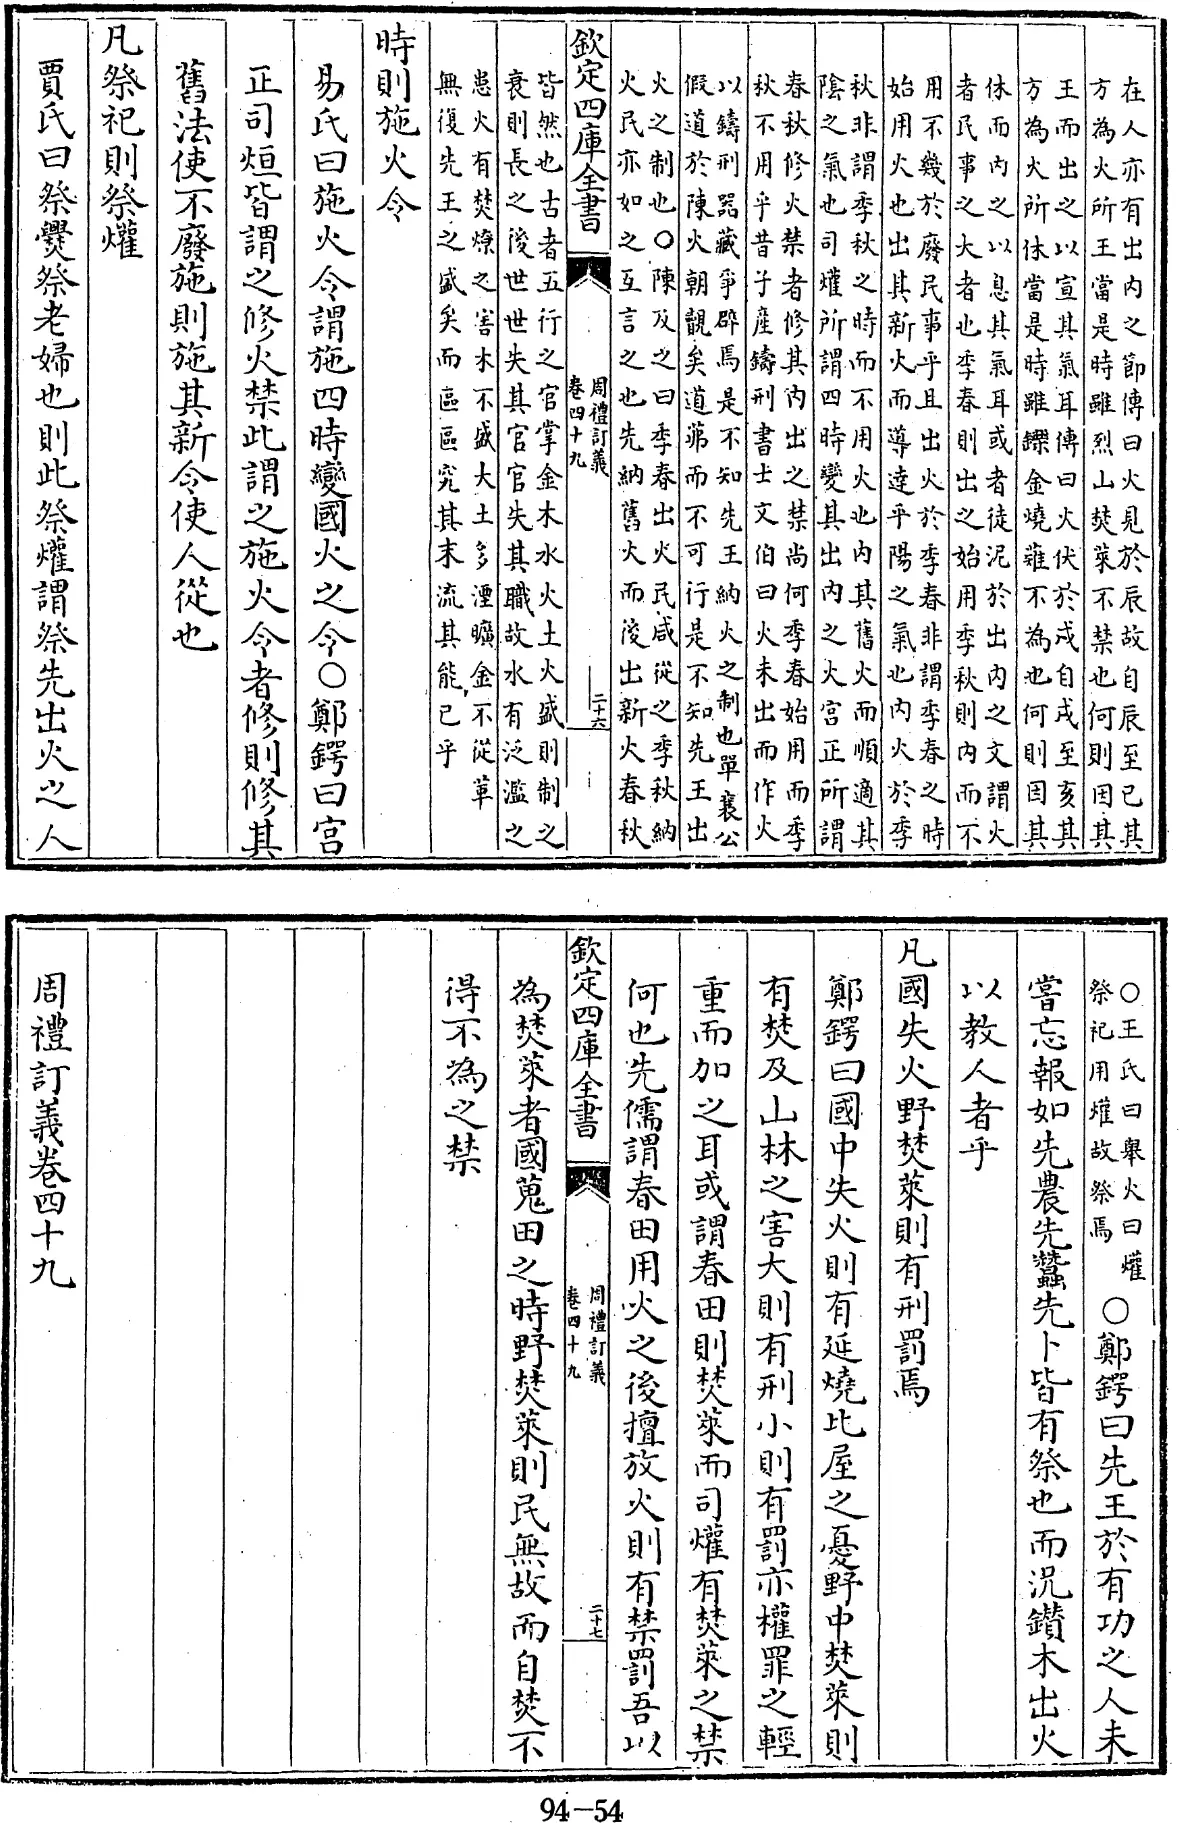 在人亦有出内之節傳曰火見於辰故自辰至巳其
方為火所王當是時雖烈山焚萊不禁也何則因其
王而出之以宣其氣耳傳曰火伏於戌自戌至亥其
方為火所休當是時雖鑠金燒薙不為也何則因其
休而内之以息其氣耳或者徒泥於出内之文謂火
者民事之大者也季春則出之始用季秋則内而不
用不幾於廢民事乎且出火於季春非謂季春之時
始用火也出其新火而導達乎陽之氣也内火於季
秋非謂季秋之時而不用火也内其舊火而順適其
陰之氣也司爟所謂四時變其出内之火宫正所謂
春秋修火禁者修其内出之禁尚何季春始用而季
秋不用乎昔子產鑄刑書士文伯曰火未出而作火
以鑄刑器藏爭辟焉是不知先王納火之制也單襄公
假道於陳火朝覿矣道茀而不可行是不知先王出
火之制也○陳及之曰季春出火民咸從之季秋納
火民亦如之互言之也先納舊火而後出新火春秋
欽定四庫全書
周禮訂義
卷四十九
二十六
皆然也古者五行之官掌金木水火土火盛則制之
衰則長之後世世失其官官失其職故水有泛濫之
患火有焚燎之害木不盛大土多湮曠金不從革
無復先王之盛矣而區區究其末流其能已乎
時則施火令
易氏曰施火令謂施四時變國火之令○鄭鍔曰宫
正司烜皆謂之修火禁此謂之施火令者修則修其
舊法使不廢施則施其新令使人從也
凡祭祀則祭爟
賈氏曰祭爨祭老婦也則此祭爟謂祭先出火之人
○王氏曰舉火曰爟
祭祀用爟故祭焉
○鄭鍔曰先王於有功之人未
嘗忘報如先農先蠶先卜皆有祭也而況鑽木出火
以教人者乎
凡國失火野焚萊則有刑罰焉
鄭鍔曰國中失火則有延燒比屋之憂野中焚萊則
有焚及山林之害大則有刑小則有罰亦權罪之輕
重而加之耳或謂春田則焚萊而司爟有焚萊之禁
何也先儒謂春田用火之後擅放火則有禁罰吾以
欽定四庫全書
周禮訂義
卷四十九
二十七
為焚萊者國蒐田之時野焚萊則民無故而自焚不
得不為之禁
周禮訂義卷四十九
94-54